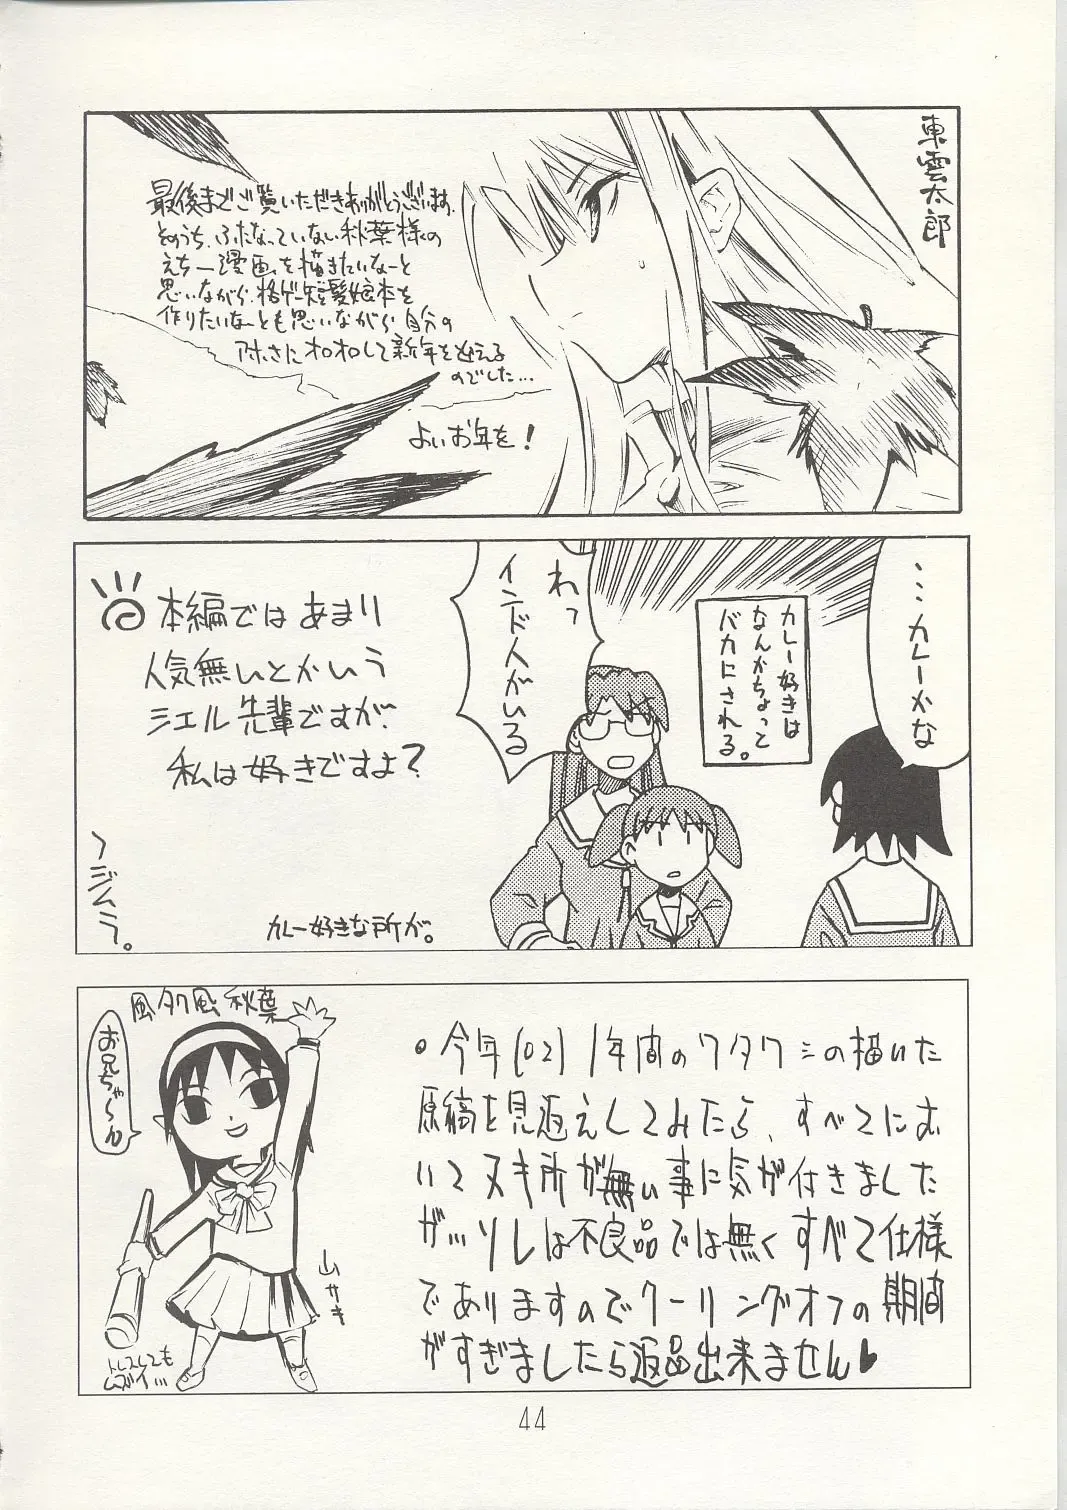 東雲太郎
最後までご覧いただきありがとうございます。
そのうち、ふたなっていない秋葉様の
えちー漫画を描きたいなーと
思いながら、格ゲー短髪娘本を
作りたいなーとも思いながら自分の
アホさにオロオロして新年を迎える
のでした…
よいお年を!
…カレーかな
カレー好きは
なんかちょって
バカにされる。
わっ
インド人がいる
本編ではあまり
人気無いとかいう
シエル先輩ですが、
私は好きですよ?
カレー好きな所が。
〜ジムラ。
風タク風秋葉
お兄ちゃ〜ん
山サキ
トレスしても
ムズイ…
・今年(02)1年間のワタクシの描いた
原稿を見返えしてみたら、すべてにお
いてヌキ所が無い事に気が付きました
が…ソレは不良品では無くすべて仕様
でありますのでクーリングオフの期間
がすぎましたら返品出来ません♥
44